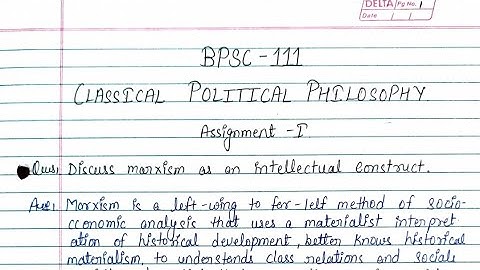 DELTA Pg No. 1
Date
BPSC-111
CLASSICAL POLITICAL PHILOSOPHY.
Assignment-I
Ques: Discuss marxism as an intellectual construct.
Ans: Marxism is a left-wing to far-left method of socio-
economic analysis that uses a materialist interpret
ation of historical development, better knows historical
materialism, to understands class relations and socials